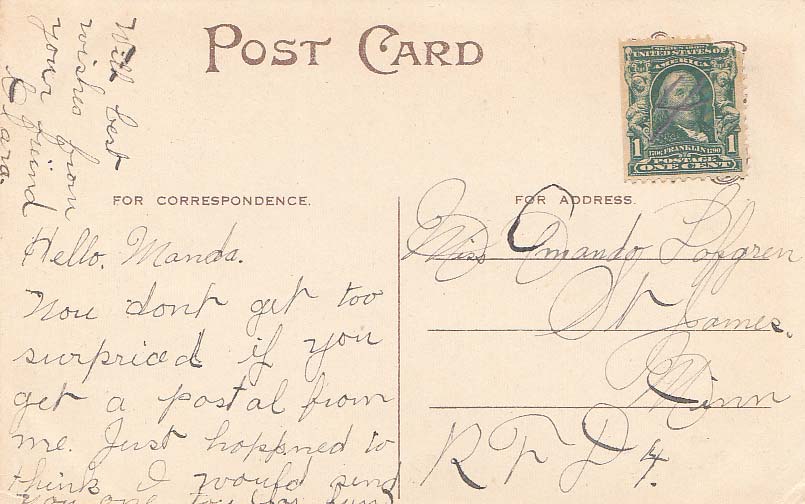 POST CARD
With best
wishes from
your frind
Clara.
SERIES 1902
UNITED STATES OF
AMERICA
1 1
1706 FRANKLIN 1790
POSTAGE
ONE CENT
FOR CORRESPONDENCE.
Hello. Manda.
Now dont get too
surpriced if you
get a postal from
me. Just happned to
think I would send
you one too for fun
FOR ADDRESS.
Miss Amanda Lofgren
St James.
Minn
R F D 4.